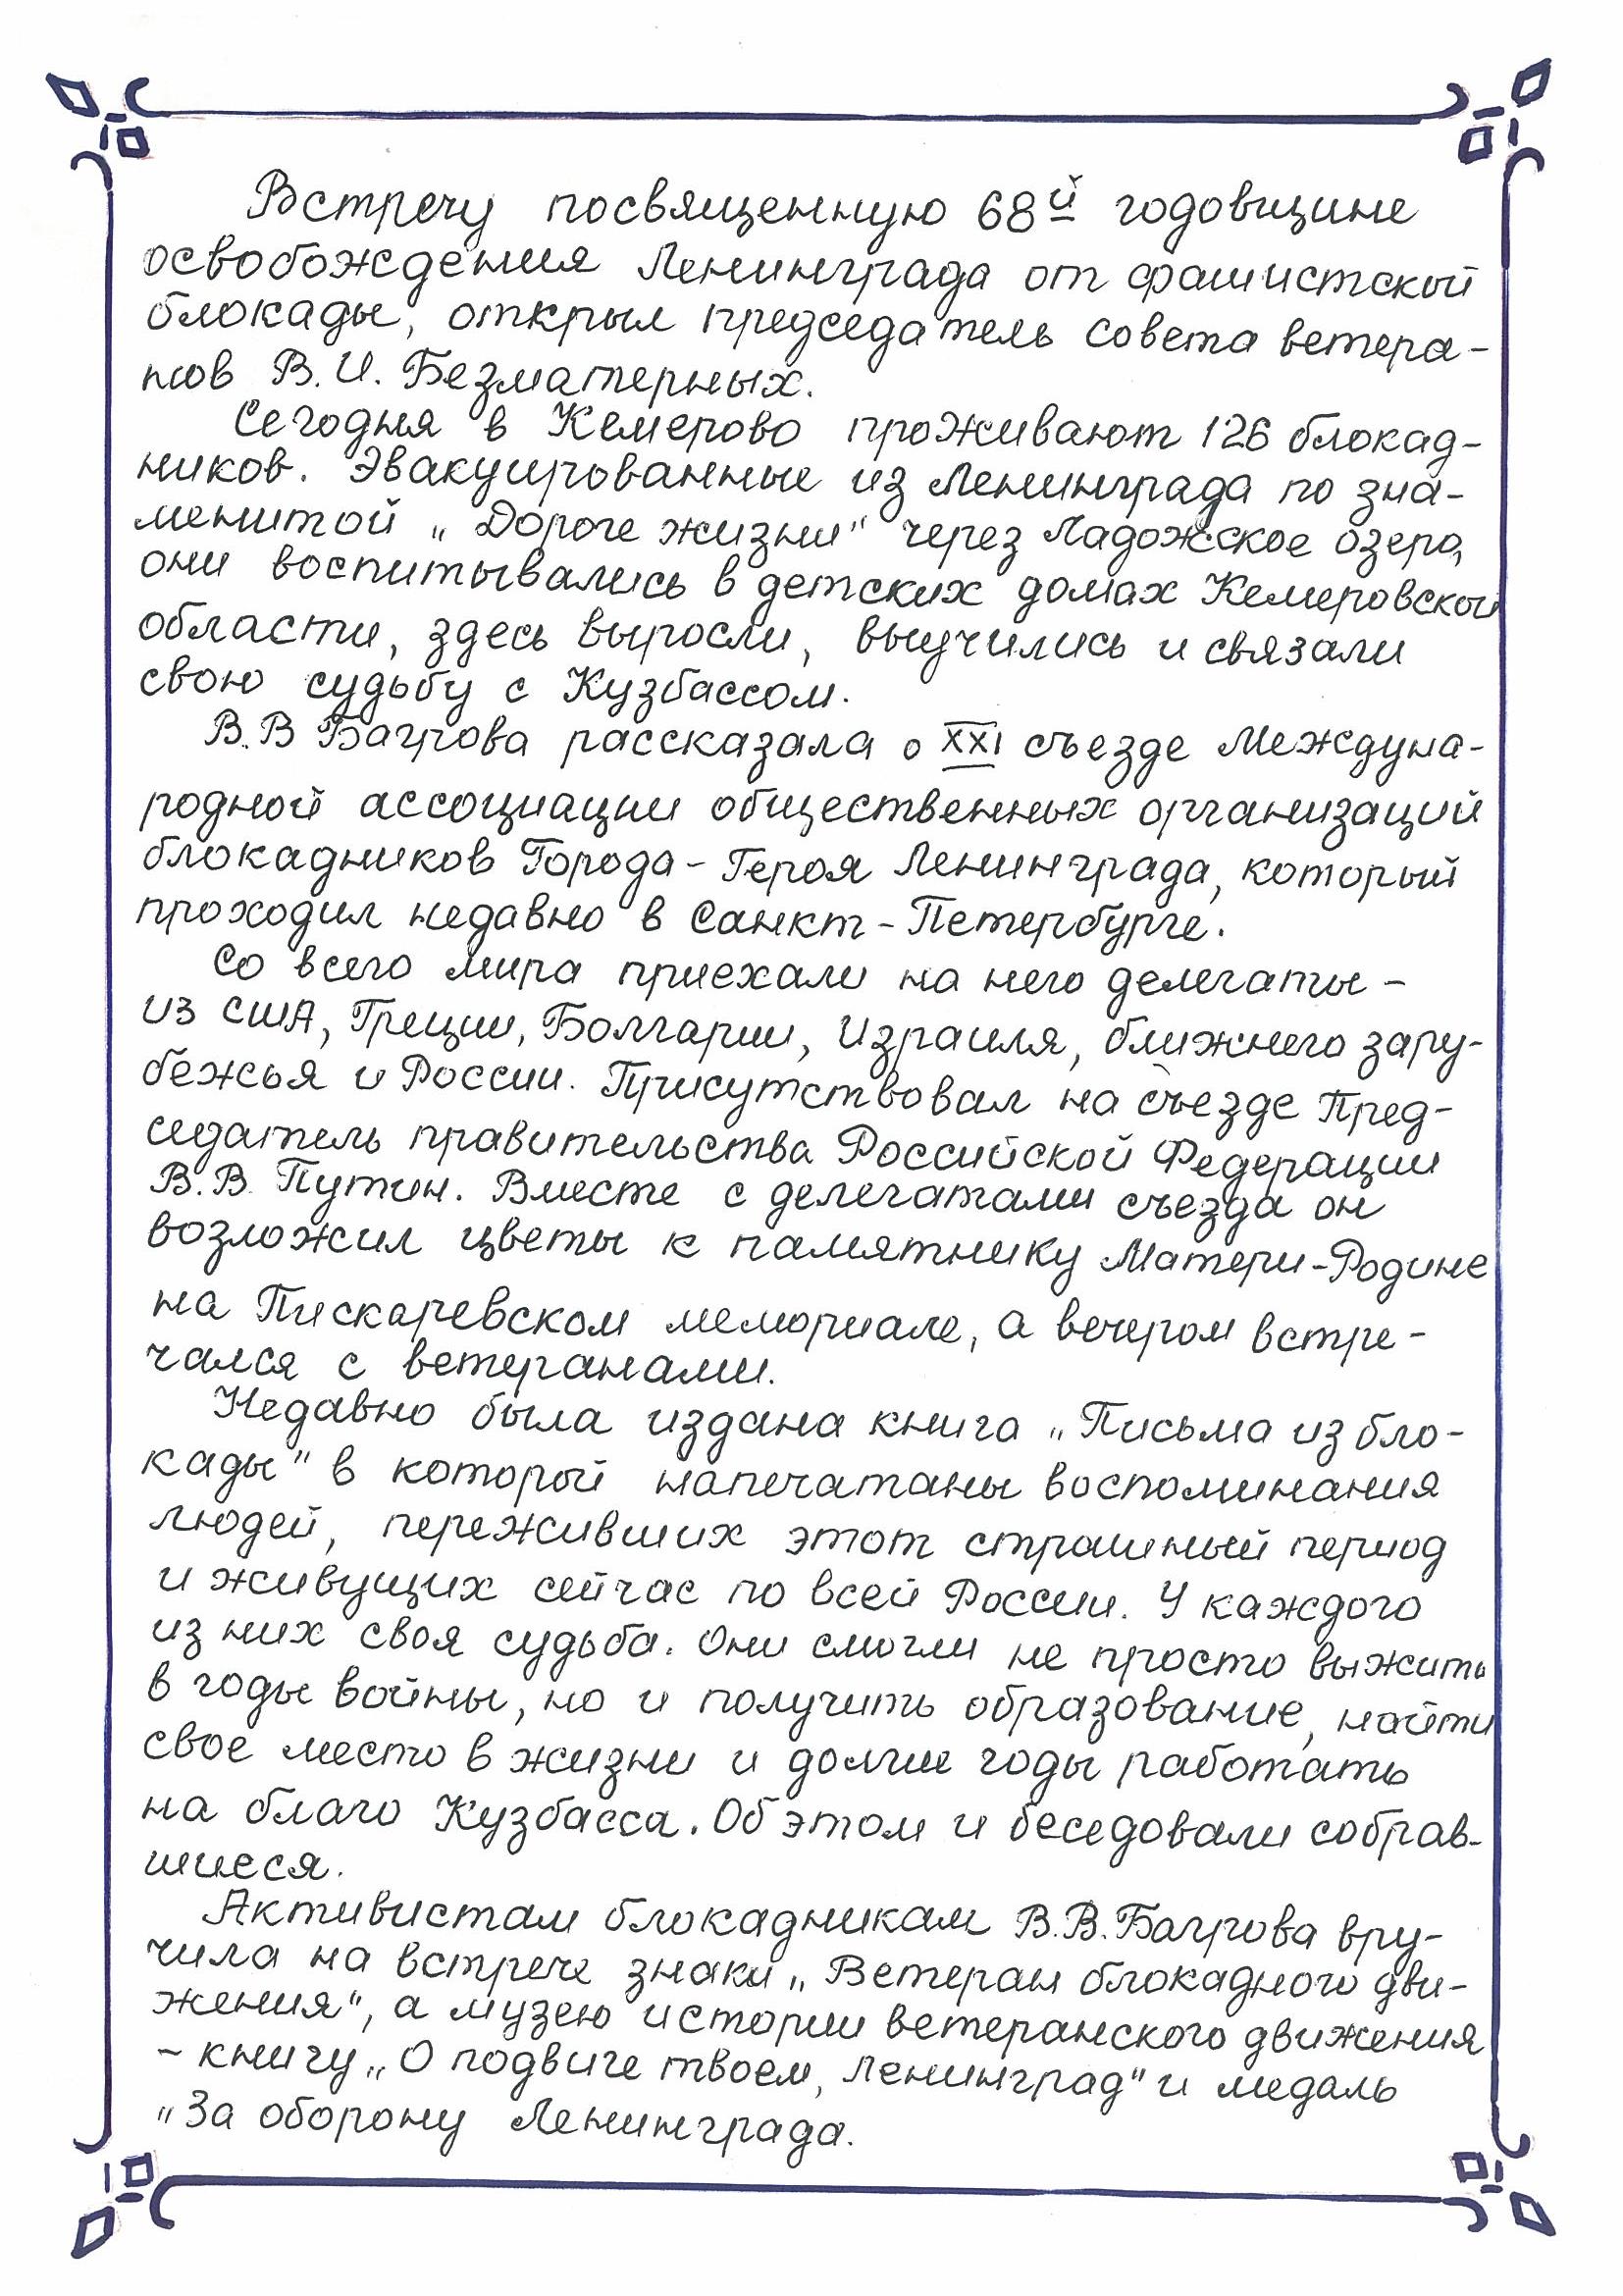 Встречу посвященную 68й годовщине
освобождения Ленинграда от фашистской
блокады, открыл председатель совета ветера-
нов В.И. Безматерных.
Сегодня в Кемерово проживают 126 блокад-
ников. Эвакуированные из Ленинграда по зна-
менитой „Дороге жизни" через Ладожское озеро,
они воспитывались в детских домах Кемеровской
области, здесь выросли, выучились и связали
свою судьбу с Кузбассом.
В.В Багрова рассказала о XXI съезде Междуна-
родной ассоциации общественных организаций
блокадников Города-Героя Ленинграда, который
проходил недавно в Санкт-Петербурге.
Со всего мира приехали на него делегаты -
из США, Греции, Болгарии, Израиля, ближнего зару-
бежья и России. Присутствовал на съезде Пред-
седатель правительства Российской Федерации
В.В. Путин. Вместе с делегатами съезда он
возложил цветы к памятнику Матери-Родине
на Пискаревском мемориале, а вечером встре-
чался с ветеранами.
Недавно была издана книга „Письма из бло-
кады" в которой напечатаны воспоминания
людей, переживших этот страшный период
и живущих сейчас по всей России. У каждого
из них своя судьба. Они смогли не просто выжить
в годы войны, но и получить образование, найти
свое место в жизни и долгие годы работать
на благо Кузбасса. Об этом и беседовали собрав-
шиеся.
Активистам блокадникам В.В. Багрова вру-
чила на встрече знаки „Ветеран блокадного дви-
жения", а музею истории ветеранского движения
- книгу „О подвиге твоем, Ленинград" и медаль
„За оборону Ленинграда.